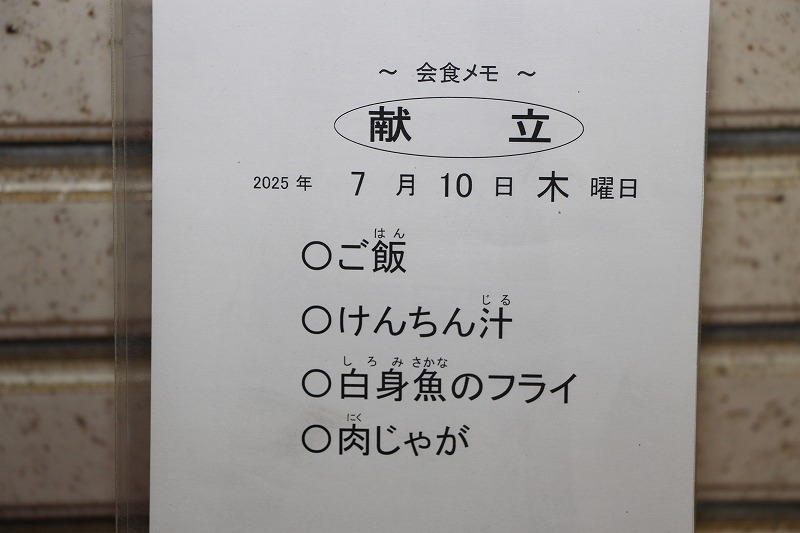 ～ 会食メモ ～
献 立
2025 年 7 月 10 日 木 曜日
はん
〇ご飯
じる
〇けんちん汁
しろみさかな
〇白身魚のフライ
にく
〇肉じゃが